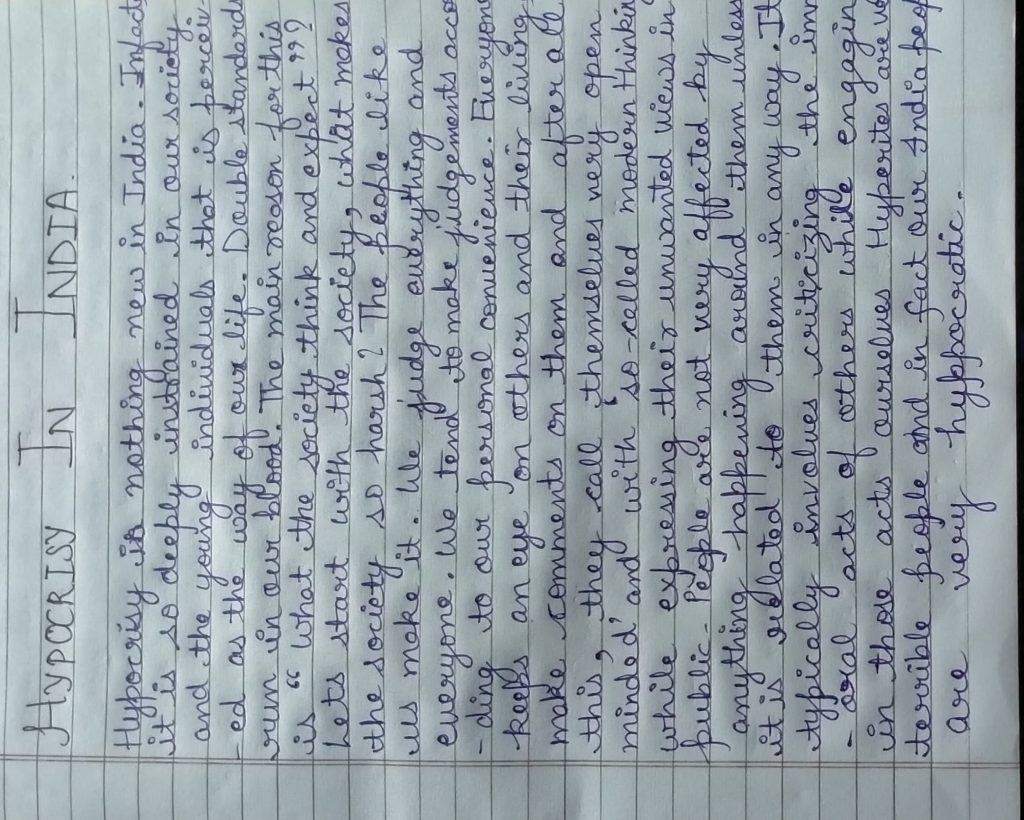 HYPOCRISY IN INDIA.
Hypocrisy is nothing new in India. Infact
it is so deeply instrained in our society
and the young individuals that is percei-
-ed as the way of our life. Double standards
run in our blood. The main reason for this
is "What the society think and expect"?
Lets start with the society, what makes
the society so harsh? The people like
us make it. We judge everything and
everyone. We tend to make judgements acco
-ding to our personal convenience. Everyone
keeps an eye on others and their living
make comments on them and after all
this, they call themselves very open
minded' and with 'so-called modern thinkin
while expressing their unwanted views in
public. People are not very affected by
anything happening around them unless
it is related to them in any way. It
typically involves criticizing the imm
-oral acts of others while engagin
in those acts ourselves Hyporites are
terrible people and in fact our India peop
are very hypocratic.